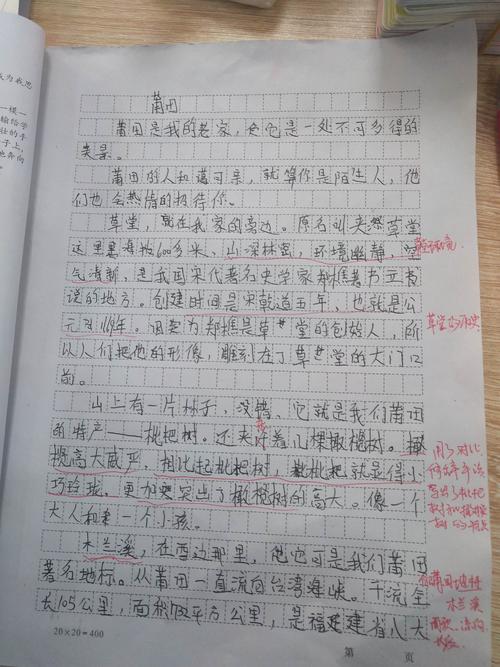 莆田
莆田是我的老家,它也是一处不可多得的
美景。
莆田的人和蔼可亲,就算你是陌生人,他
们也会热情的招待你。
草堂,就在我家的旁边。原名叫夹漈草堂
这里海拔600多米,山深林密,环境幽静,空
气清新,是我国宋代著名史学家郑樵著书立
说的地方。创建时间是宋乾道五年,也就是公
元1169年。因为郑樵是草堂的创始人,所
以人们把他的形像,雕刻在了草堂的大门口
前。
山上有一片林子,没错,它就是我们莆田
的特产——枇杷树。还夹杂着几棵橄榄树。橄
榄高大威严,相比起枇杷树,枇杷就是得小
巧玲珑,更加突出了橄榄树的高大。像一个
大人和一个小孩。
木兰溪,在西边那里,他可是我们莆田
著名地标。从莆田一直流向台湾海峡。干流全
长105公里,面积1732平方公里,是福建省八大
20×20=400
第 页
草堂的
用了对比
木兰溪